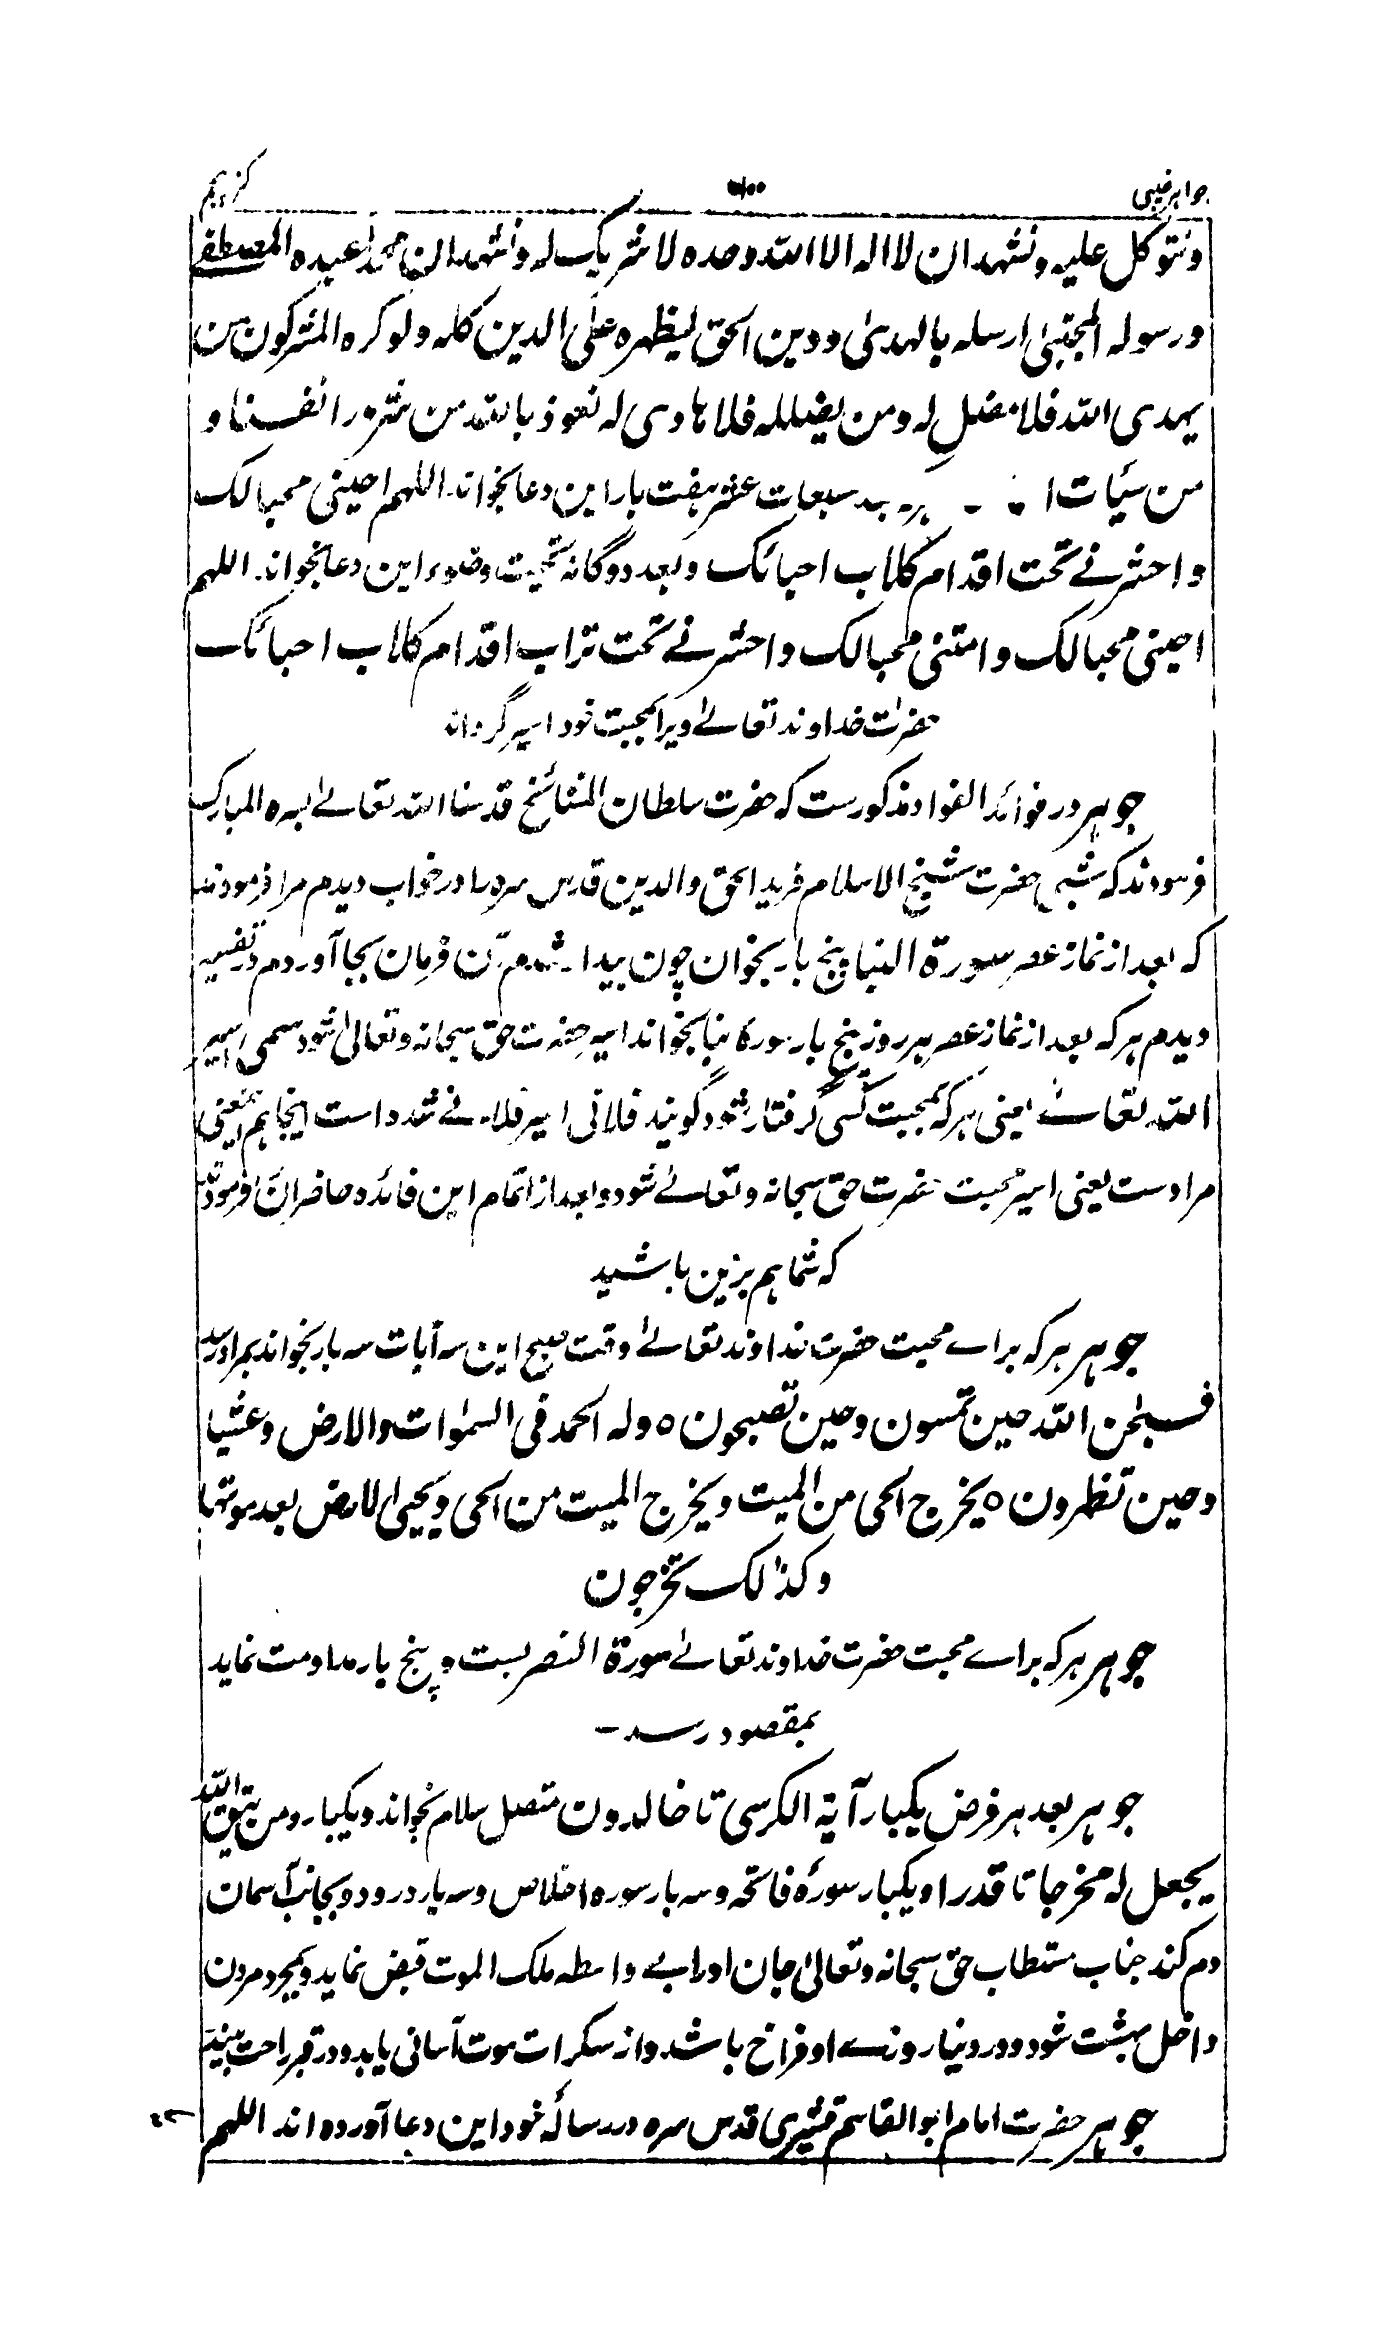 جواهر غیبی
کنز پنجم
ونتوکل علیه ونشهد ان لا اله الا الله وحده لا شریک له ونشهد ان محمدا عبده المصطفے
ورسوله المجتبیٰ ارسله بالهدیٰ ودین الحق لیظهره علی الدین کله ولو کره المشرکون من
یهدی الله فلا مضل له ومن یضلله فلا هادی له نعوذ بالله من شرور انفسنا و
من سیٔات ا مسبعات عشر هفت بار این دعا بخواند اللهم احینی محبا لک
واحشرنے تحت اقدام کلاب احبائک وبعد دوگانه تحیت وضوء این دعا بخواند اللهم
احینی محبا لک وامتنی محبا لک واحشرنے تحت تراب اقدام کلاب احبائک
حضرت خداوند تعالےٰ ویرا بمحبت خود اسیر گرداند
جوهر در فوائد الفواد مذکورست که حضرت سلطان المشائخ قدسنا الله تعالےٰ بسره المبارک
فرمودند که شبی حضرت شیخ الاسلام فرید الحق والدین قدس سره را در خواب دیدم مرا فرمودند
که بعد از نماز عصر سورة النبا پنج بار بخوان چون بیدار شدم آن فرمان بجا آوردم در تفسیر
دیدم هر که بعد از نماز عصر هر روز پنج بار سورهٔ نبا بخواند اسیر حضرت حق سبحانه وتعالیٰ شود سمی اسیر
الله تعالےٰ یعنی هر که بمحبت کسی گرفتار شود گویند فلانی اسیر فلانے شده است اینجا هم همین معنی
مرادست یعنی اسیر محبت حضرت حق سبحانه وتعالےٰ شود وبعد از اتمام این فائده حاضران را فرمودند
که شما هم برین باشید
جوهر هر که براے محبت حضرت خداوند تعالےٰ وقت صبح این سه آیات سه بار بخواند بمراد رسد
فسبحٰن الله حین تمسون وحین تصبحون ٥ وله الحمد فی السمٰوات والارض وعشیا
وحین تظهرون ٥ یخرج الحی من المیت ویخرج المیت من الحی ویحیی الارض بعد موتها
وکذٰلک تخرجون
جوهر هر که براے محبت حضرت خداوند تعالےٰ سورة النصر بست و پنج بار مداومت نماید
بمقصود رسد –
جوهر بعد هر فرض یکبار آیة الکرسی تا خالدون متصل سلام بخواند ویکبار ومن یتق الله
یجعل له مخرجا تا قدرا ویکبار سورهٔ فاتحه وسه بار سوره اخلاص وسه بار درود وبجانب آسمان
دم کند جناب مستطاب حق سبحانه وتعالیٰ جان اورا بے واسطه ملک الموت قبض نماید وبمجرد مردن
داخل بهشت شود ودر دنیا روزے او فراخ باشد واز سکرات موت آسانی یابد ودر قبر راحت بیند
جوهر حضرت امام ابو القاسم قشیری قدس سره در رسالهٔ خود این دعا آورده اند اللهم